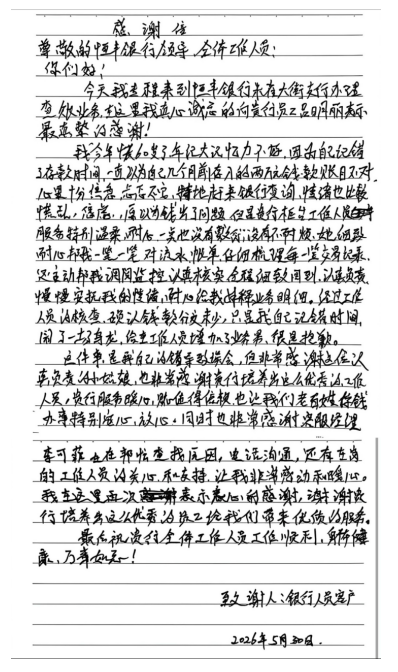 感谢信
尊敬的恒丰银行领导、全体工作人员：
你们好！
今天我专程来到恒丰银行东在大街支行办理
查账业务，在这里我真心诚意的向贵行员工吕明丽表示
最真挚的感谢！
我今年快60岁了年纪大记忆力不好，因为自己记错
了存款时间，一直以为自己几个月前存入的两万元钱款账目不对，
心里十分焦急，忐忑不安，特地赶来银行查询，情绪也比较
慌乱，焦虑，原以为钱出了问题，但是贵行柜台工作人员
服务特别温柔，耐心，一点也没有敷衍，没有不耐烦，她细致
耐心帮我一笔一笔对流水，账单仔细梳理每一笔交易记录，
还主动帮我调阅监控，认真核实，全程细致周到，认真负责，
慢慢安抚我的情绪，耐心给我解释业务明细，经过工作
人员的核查，确认钱款分文未少，只是我自己记错时间，
闹了一场乌龙，给工作人员增加了业务量，很是抱歉。
这件事是我自己的错导致误会，但非常感谢这位认
真负责的小姑娘，也非常感谢贵行培养出这么优秀的工作
人员，贵行服务暖心，
办事特别安心，放心。同时也非常感谢客服经理
李可菲也在帮忙查找原因，电话沟通，还有在岗
的工作人员的关心和支持，让我非常感动和暖心。
我在这里再次表示衷心的感谢，谢谢贵
行培养出这么优秀的员工给我们带来优质的服务。
最后祝贵行全体工作人员工作顺利，身体健
康，万事如意！
致谢人：银行人员客户
2026年5月30日.